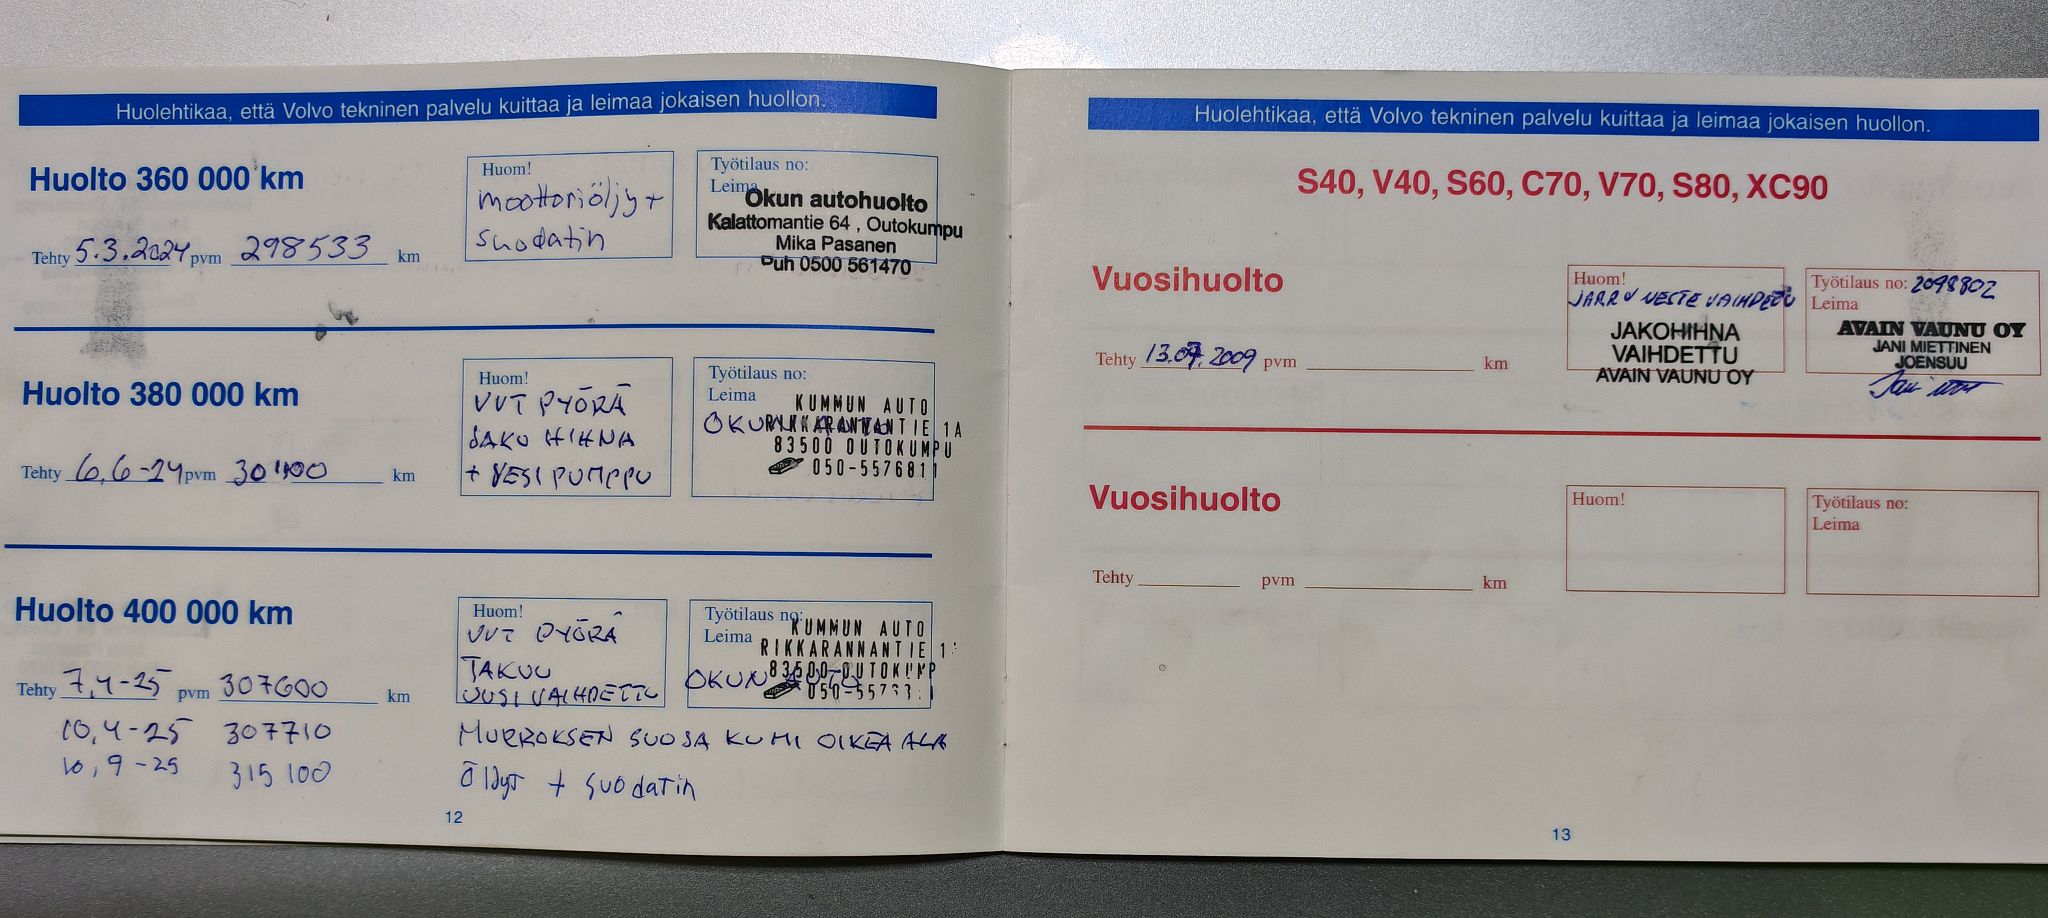 Huolehtikaa, että Volvo tekninen palvelu kuittaa ja leimaa jokaisen huollon.
Huolto 360 000 km
Tehty 5.3.2024 pvm 298533 km
Huom!
moottoriöljy +
suodatin
Työtilaus no:
Leima
Okun autohuolto
Kalattomantie 64 , Outokumpu
Mika Pasanen
Puh 0500 561470
Huolto 380 000 km
Tehty 6,6-24 pvm km
Huom!
VVT PYÖRÄ
JAKO HIHNA
+ VESI PUMPPU
Työtilaus no:
Leima
KUMMUN AUTO
OKUN AUTO
RIKKARANNANTIE 1A
83500 OUTOKUMPU
050-5576811
Huolto 400 000 km
Tehty 7,4-25 pvm 307600 km
Huom!
VVT PYÖRÄ
TAKUU
UUSI VAIHDETTU
Työtilaus no:
Leima
KUMMUN AUTO
RIKKARANNANTIE
83500 OUTOKUMP
OKUN AUTO
10,4-25 307710 MURROKSEN SUOSA KUMI OIKEA ALA
10,9-25 315 100 Öljyt + suodatin
12
Huolehtikaa, että Volvo tekninen palvelu kuittaa ja leimaa jokaisen huollon.
S40, V40, S60, C70, V70, S80, XC90
Vuosihuolto
Tehty 13.07.2009 pvm km
Huom!
JARRU NESTE VAIHDETTU
JAKOHIHNA
VAIHDETTU
AVAIN VAUNU OY
Työtilaus no: 2098802
Leima
AVAIN VAUNU OY
JANI MIETTINEN
JOENSUU
Vuosihuolto
Tehty pvm km
Huom!
Työtilaus no:
Leima
13